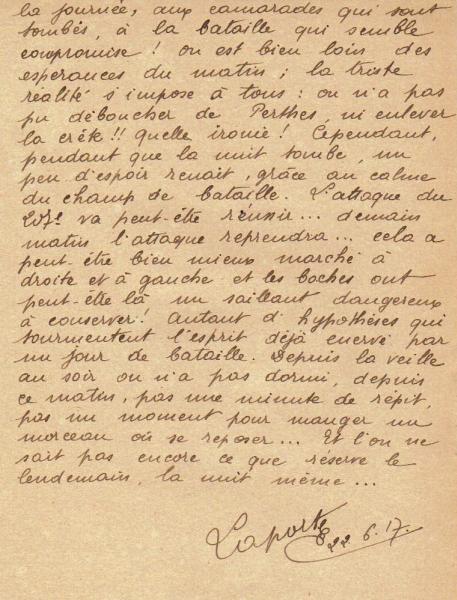 la journée, aux camarades qui sont
tombés, à la bataille qui semble
compromise ! on est bien loin des
espérances du matin ; la triste
réalité s'impose à tous : on n'a pas
pu déboucher de Perthes, ni enlever
la crête !! quelle ironie ! Cependant,
pendant que la nuit tombe, un
peu d'espoir renait, grâce au calme
du champ de bataille. L'attaque du
207e va peut-être réussir... demain
matin l'attaque reprendra... cela a
peut-être bien mieux marché à
droite et à gauche et les boches ont
peut-être là un saillant dangereux
à conserver ! Autant d'hypothèses qui
tourmentent l'esprit déjà enervé par
un jour de bataille. Depuis la veille
au soir on n'a pas dormi, depuis
ce matin, pas une minute de répit,
pas un moment pour manger un
morceau où se reposer... Et l'on ne
sait pas encore ce que réserve le
lendemain, la nuit même...
Laporte
22.6.17.